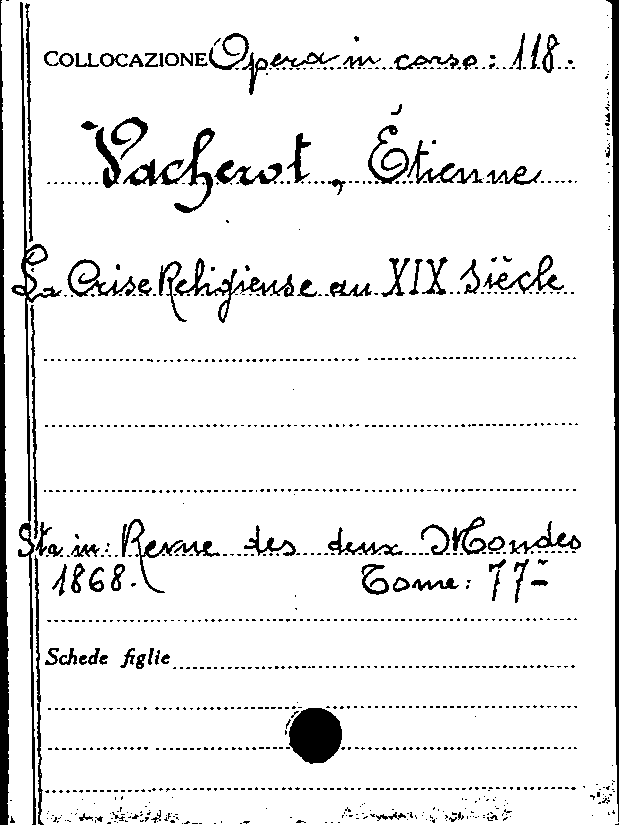 COLLOCAZIONE Opera in corso: 118.
Vacherot, Étienne
La Crise Religieuse au XIX Siècle
Sta in: Revue des deux Mondes
1868. Tome: 77-
Schede figlie